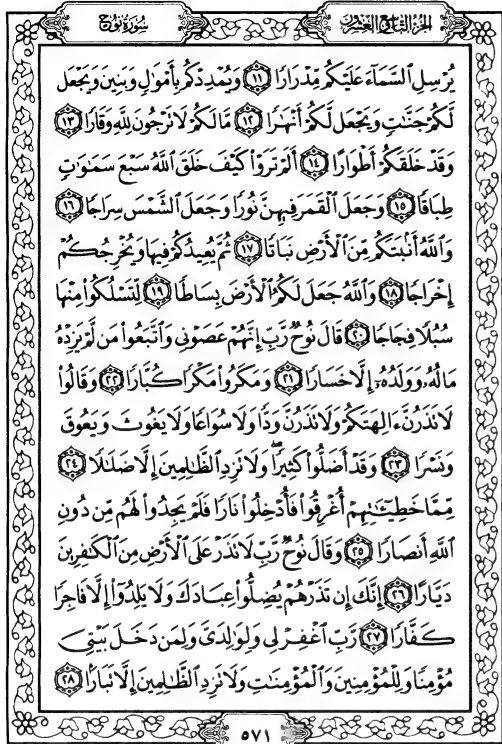 سُورَةُ نُوح
الجزء التاسع والعشرون
يُرْسِلِ ٱلسَّمَآءَ عَلَيْكُم مِّدْرَارًا ١١ وَيُمْدِدْكُم بِأَمْوَٰلٍ وَبَنِينَ وَيَجْعَل
لَّكُمْ جَنَّٰتٍ وَيَجْعَل لَّكُمْ أَنْهَٰرًا ١٢ مَّا لَكُمْ لَا تَرْجُونَ لِلَّهِ وَقَارًا ١٣
وَقَدْ خَلَقَكُمْ أَطْوَارًا ١٤ أَلَمْ تَرَوْا۟ كَيْفَ خَلَقَ ٱللَّهُ سَبْعَ سَمَٰوَٰتٍ
طِبَاقًا ١٥ وَجَعَلَ ٱلْقَمَرَ فِيهِنَّ نُورًا وَجَعَلَ ٱلشَّمْسَ سِرَاجًا ١٦
وَٱللَّهُ أَنۢبَتَكُم مِّنَ ٱلْأَرْضِ نَبَاتًا ١٧ ثُمَّ يُعِيدُكُمْ فِيهَا وَيُخْرِجُكُمْ
إِخْرَاجًا ١٨ وَٱللَّهُ جَعَلَ لَكُمُ ٱلْأَرْضَ بِسَاطًا ١٩ لِّتَسْلُكُوا۟ مِنْهَا
سُبُلًا فِجَاجًا ٢٠ قَالَ نُوحٌ رَّبِّ إِنَّهُمْ عَصَوْنِى وَٱتَّبَعُوا۟ مَن لَّمْ يَزِدْهُ
مَالُهُۥ وَوَلَدُهُۥٓ إِلَّا خَسَارًا ٢١ وَمَكَرُوا۟ مَكْرًا كُبَّارًا ٢٢ وَقَالُوا۟
لَا تَذَرُنَّ ءَالِهَتَكُمْ وَلَا تَذَرُنَّ وَدًّا وَلَا سُوَاعًا وَلَا يَغُوثَ وَيَعُوقَ
وَنَسْرًا ٢٣ وَقَدْ أَضَلُّوا۟ كَثِيرًا ۖ وَلَا تَزِدِ ٱلظَّٰلِمِينَ إِلَّا ضَلَٰلًا ٢٤
مِّمَّا خَطِيٓـَٰٔتِهِمْ أُغْرِقُوا۟ فَأُدْخِلُوا۟ نَارًا فَلَمْ يَجِدُوا۟ لَهُم مِّن دُونِ
ٱللَّهِ أَنصَارًا ٢٥ وَقَالَ نُوحٌ رَّبِّ لَا تَذَرْ عَلَى ٱلْأَرْضِ مِنَ ٱلْكَٰفِرِينَ
دَيَّارًا ٢٦ إِنَّكَ إِن تَذَرْهُمْ يُضِلُّوا۟ عِبَادَكَ وَلَا يَلِدُوٓا۟ إِلَّا فَاجِرًا
كَفَّارًا ٢٧ رَّبِّ ٱغْفِرْ لِى وَلِوَٰلِدَىَّ وَلِمَن دَخَلَ بَيْتِىَ
مُؤْمِنًا وَلِلْمُؤْمِنِينَ وَٱلْمُؤْمِنَٰتِ وَلَا تَزِدِ ٱلظَّٰلِمِينَ إِلَّا تَبَارًۢا ٢٨
٥٧١